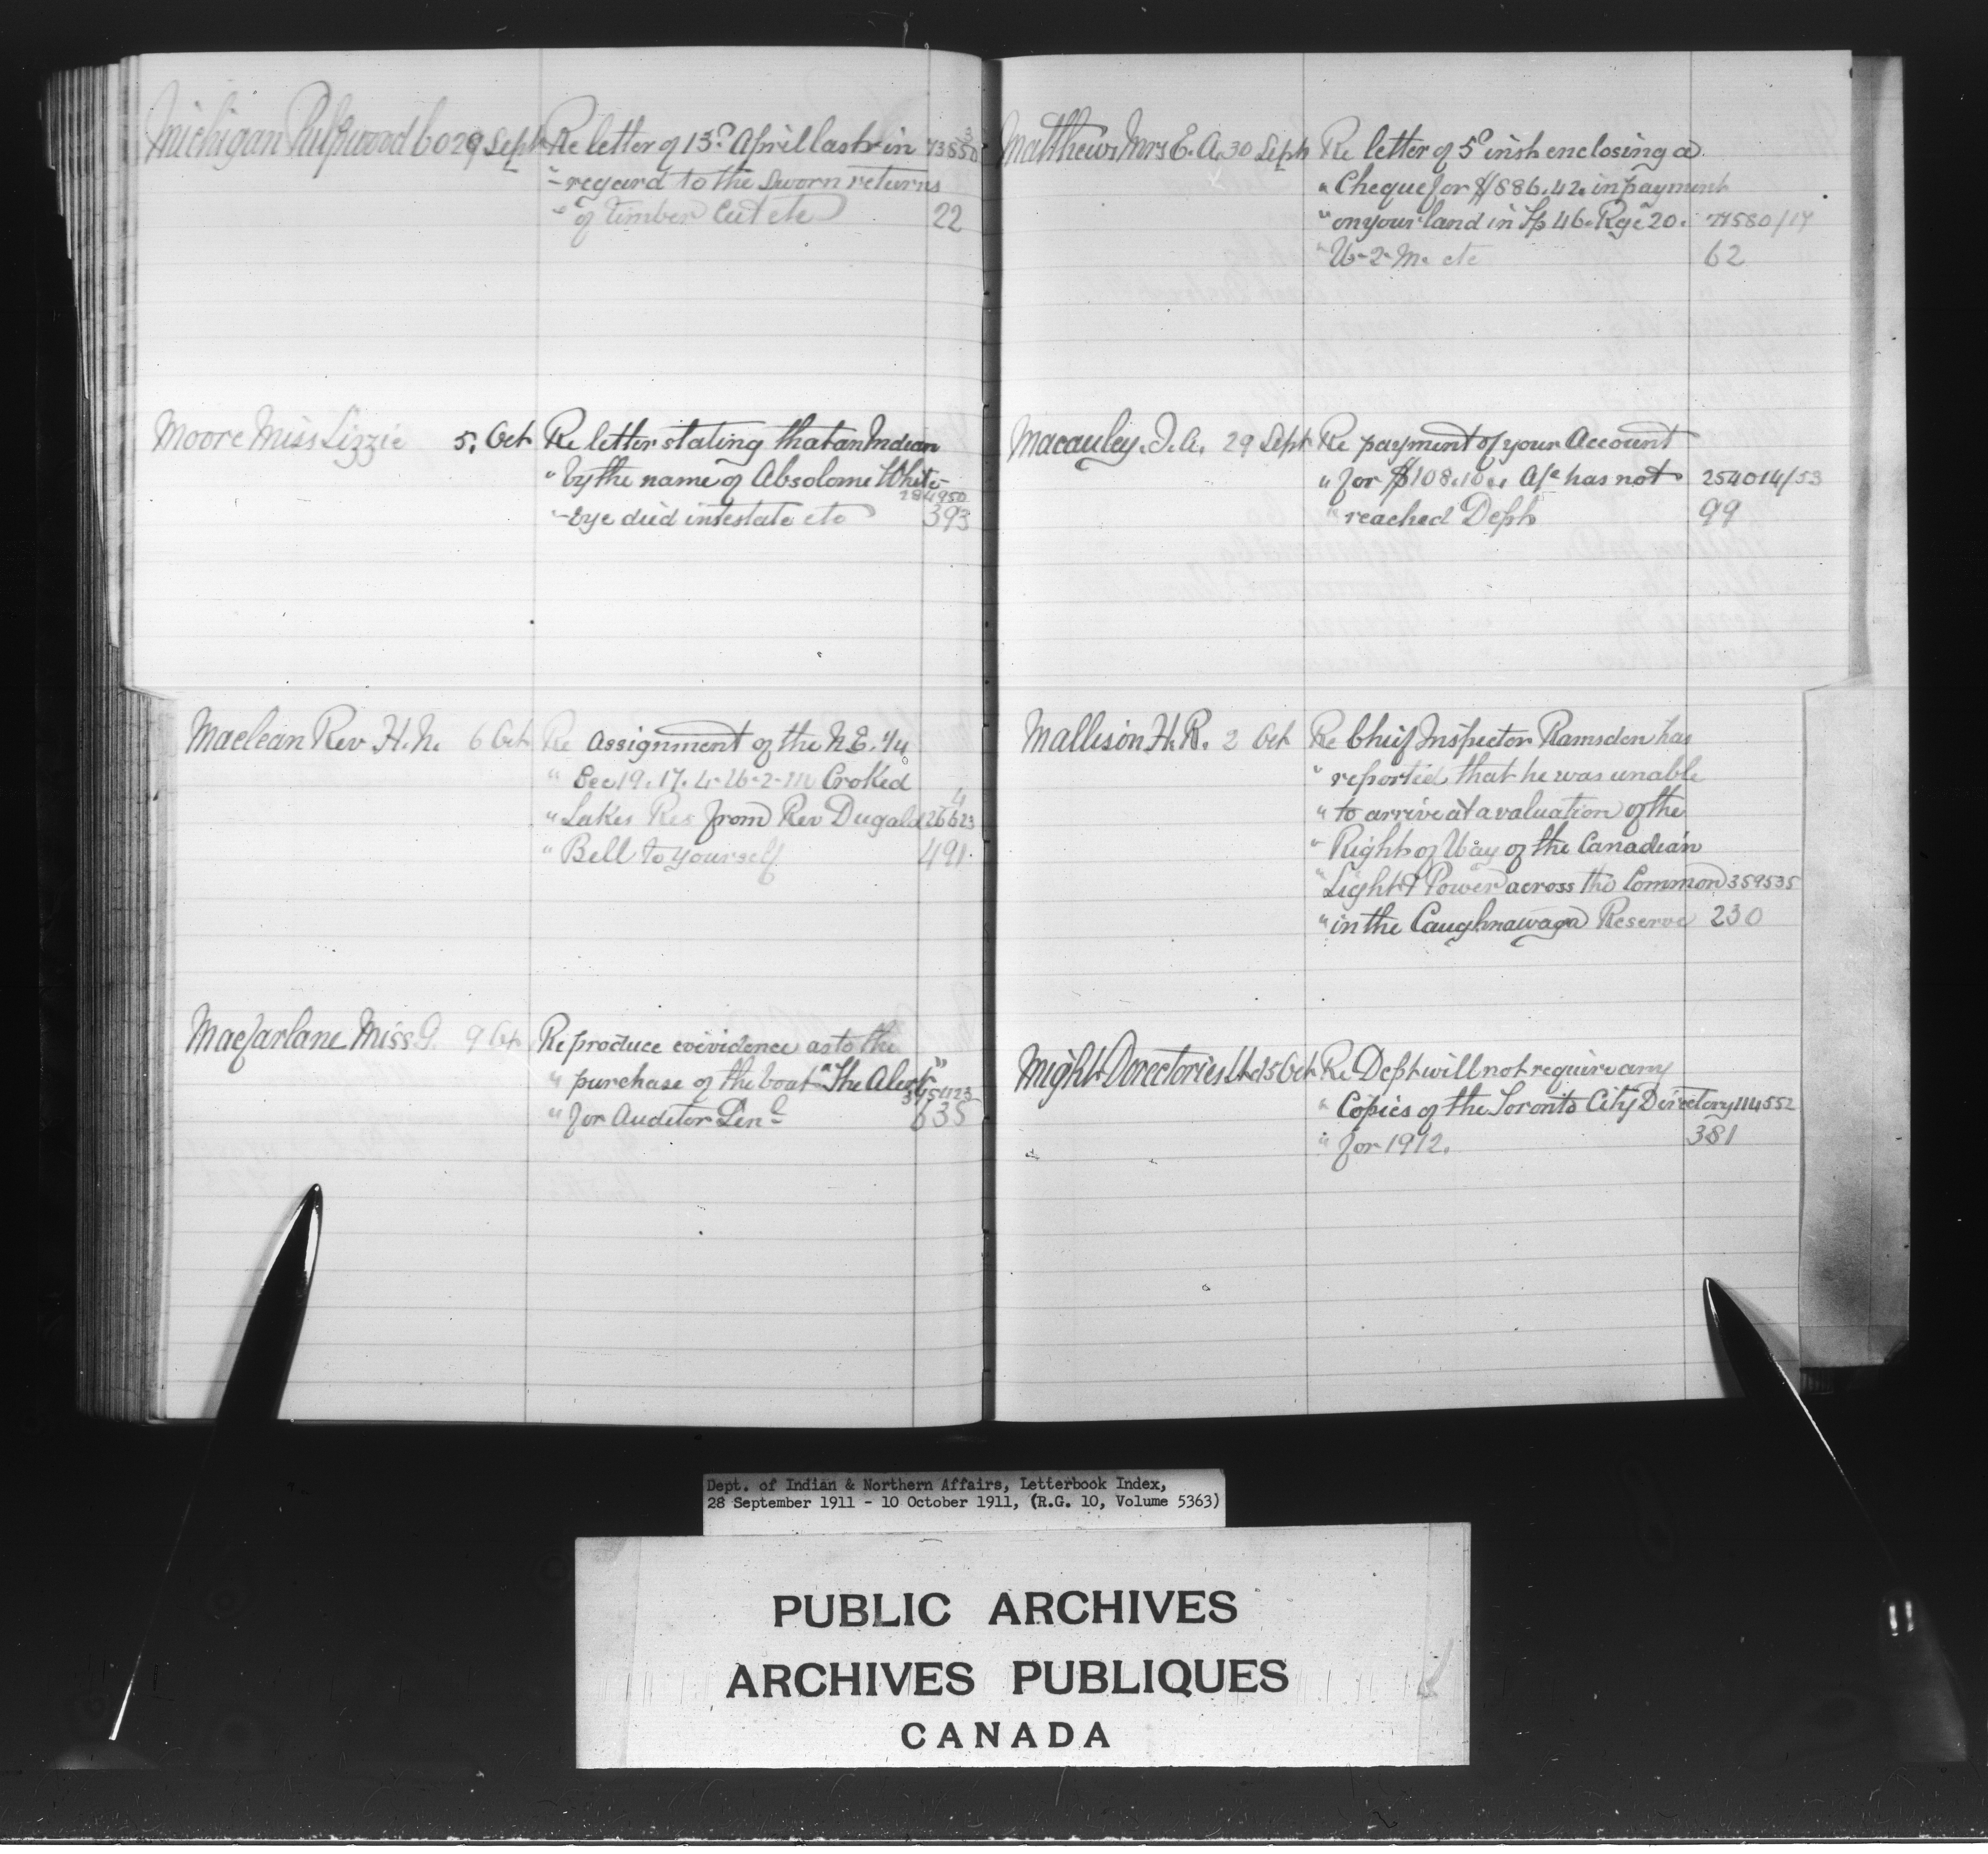 Michigan Pulpwood Co 29 Sept Re letter of 13th April last in 73850
3
" regard to the Sworn returns
" of timber cut etc 22
Moore Miss Lizzie 5. Oct Re letter stating that an Indian
" by the name of Absolome White-
284950
" -Eye died intestate etc 393
Maclean Rev. H. N. 6 Oct Re assignment of the N.E. 1/4
" Sec 19. 17. 4. W-2-M Croked
4
" Lakes Res from Rev Dugald 126623
" Bell to yourself 491.
Macfarlane Miss G. 9 Oct Re produce evevidence as to the
" purchase of the boat "The Alert"
395423
" for Auditor Genl 635
Matthews Mrs E. A. 30 Sept Re letter of 5th inst enclosing a
" Cheque for $886.42. in payment
" on your land in Tp 46. Rge 20. 71580/17
" W-2-M. etc 62
Macauley. J. A. 29 Sept Re payment of your Account
" for $108.10.. A/c has not 254014/53
" reached Dept 99
Mallison H. R. 2 Oct Re Chief Inspector Ramsden has
" reported that he was unable
" to arrive at a valuation of the
" Right of Way of the Canadian
" Light & Power across the Common 359535
" in the Caughnawaga Reserve 230
Might Directories Ltd 5 Oct Re Dept will not require any
" Copies of the Toronto City Directory 114552
" for 1912. 381
Dept. of Indian & Northern Affairs, Letterbook Index,
28 September 1911 - 10 October 1911, (R.G. 10, Volume 5363)
PUBLIC ARCHIVES
ARCHIVES PUBLIQUES
CANADA